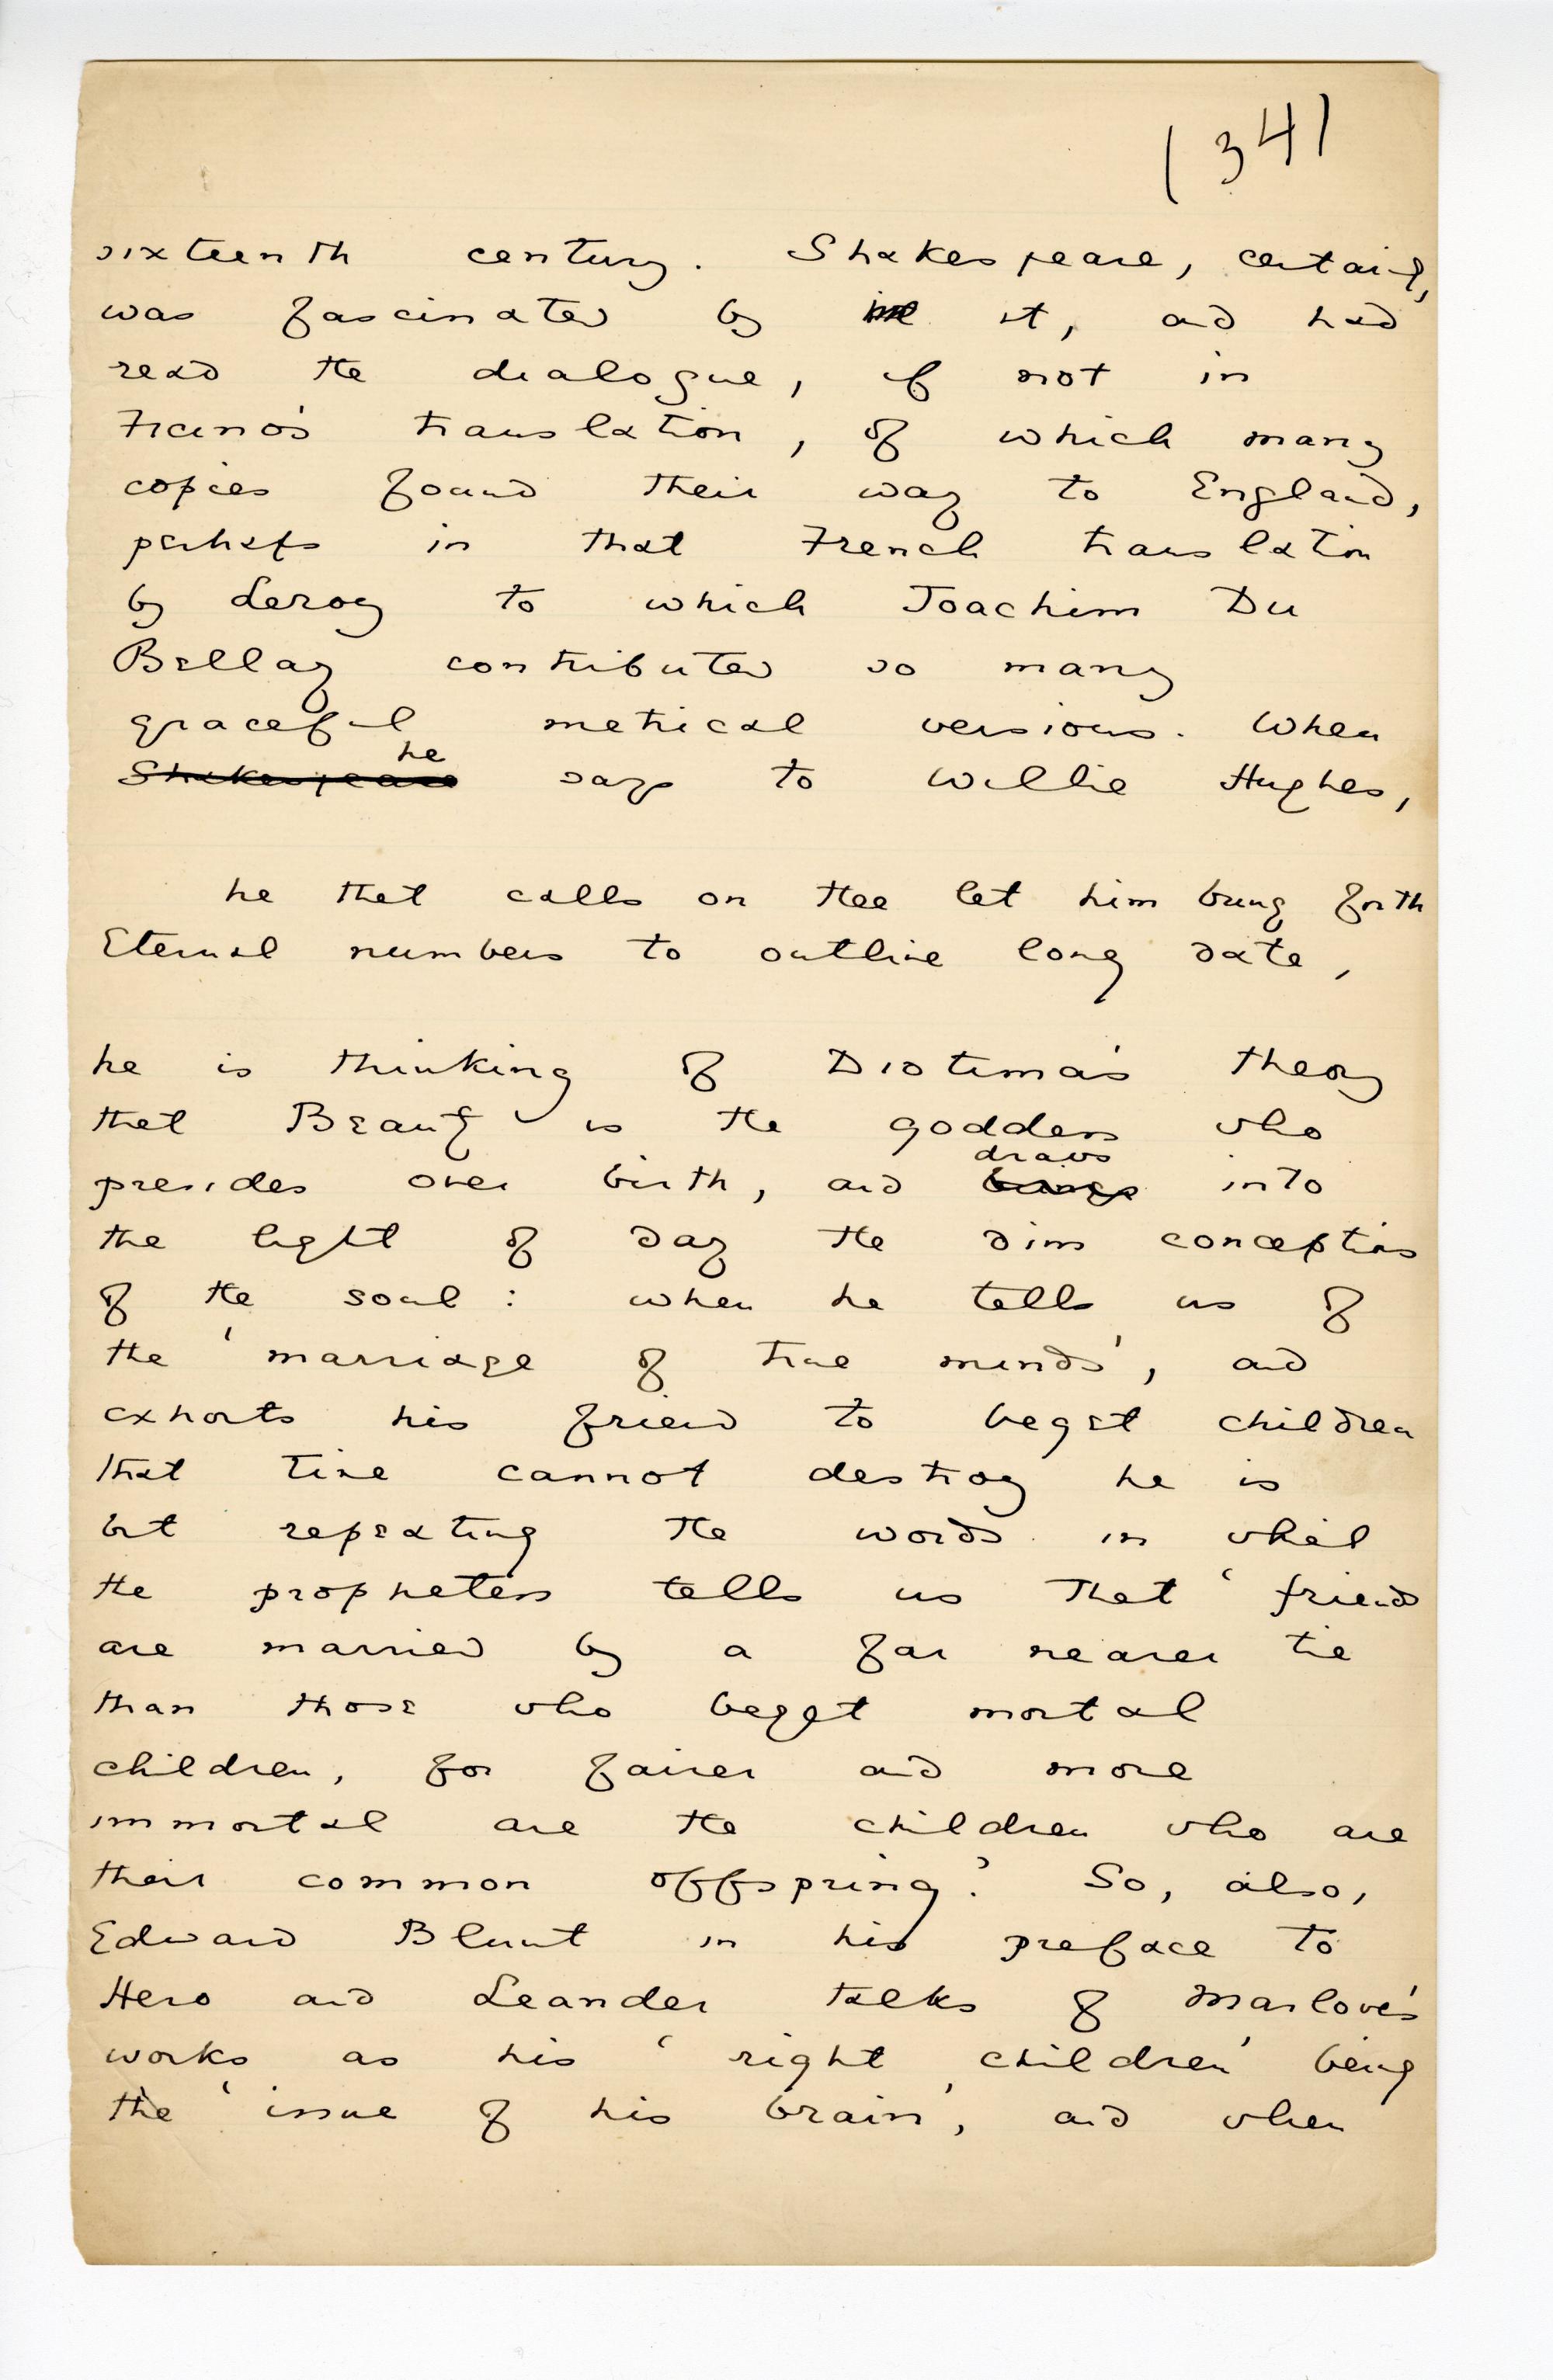 (34)
sixteenth century. Shakespeare, certainly,
was fascinated by it, and had
read the dialogue, if not in
Ficino's translation, of which many
copies found their way to England,
perhaps in that French translation
by Leroy to which Joachim Du
Bellay contributed so many
graceful metrical versions. When
he
Shakespeare says to Willie Hughes,
he that calls on thee let him bring forth
Eternal numbers to outlive long date,
he is thinking of Diotima's theory
that Beauty is the goddess who
draws
presides over birth, and brings into
the light of day the dim conceptions
of the soul: when he tells us of
the 'marriage of true minds', and
exhorts his friend to beget children
that time cannot destroy he is
but repeating the words in which
the prophetess tells us that 'friends
are married by a far nearer tie
than those who begget mortal
children, for fairer and more
immortal are the children who are
their common offspring.' So, also,
Edward Blunt in his preface to
Hero and Leander talks of Marlowe's
works as his 'right children' being
the 'issue of his brain', and when